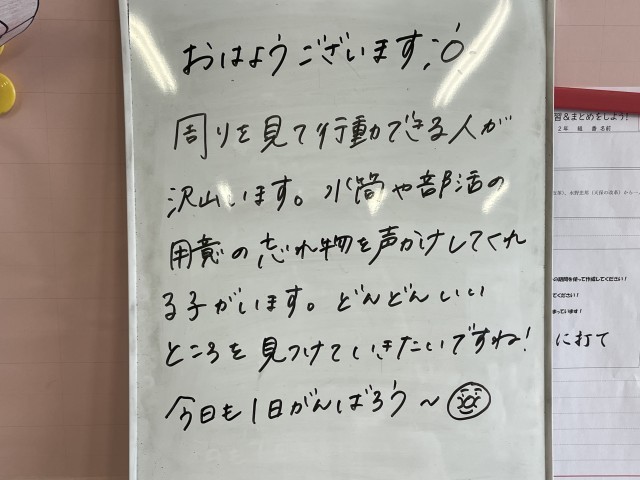 おはようございます
周りを見て行動できる人が
沢山います。水筒や部活の
用意の忘れ物を声かけしてくれ
る子がいます。どんどんいい
ところを見つけていきたいですね!
今日も1日がんばろう~
習&まとめをしよう!
2年 組 番 名前
水野忠邦(天保の改革)から
の期間を使って作成してください!
てください!
まっています!
に打て